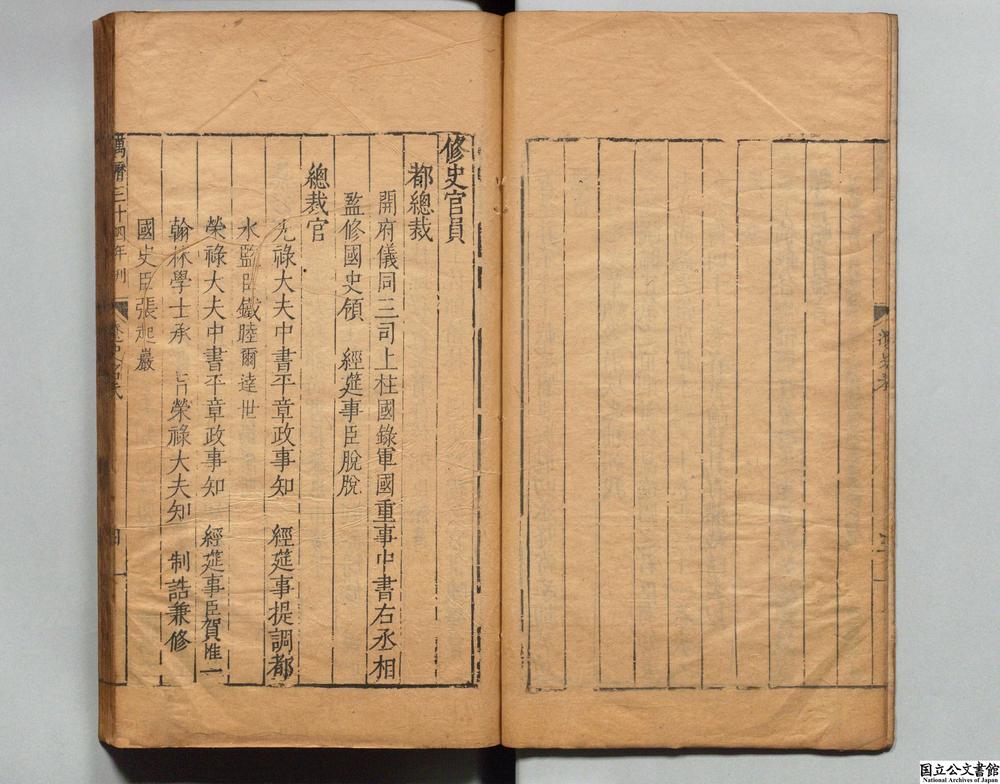 修史官員
都總裁
開府儀同三司上柱國錄軍國重事中書右丞相
監修國史領　經筵事臣脫脫
總裁官
光祿大夫中書平章政事知　經筵事提調都
水監臣鐵睦爾達世
榮祿大夫中書平章政事知　經筵事臣賀惟一
翰林學士承　旨榮祿大夫知　制誥兼修
國史臣張起巖
萬曆三十四年刊
四
国立公文書館
National Archives of Japan